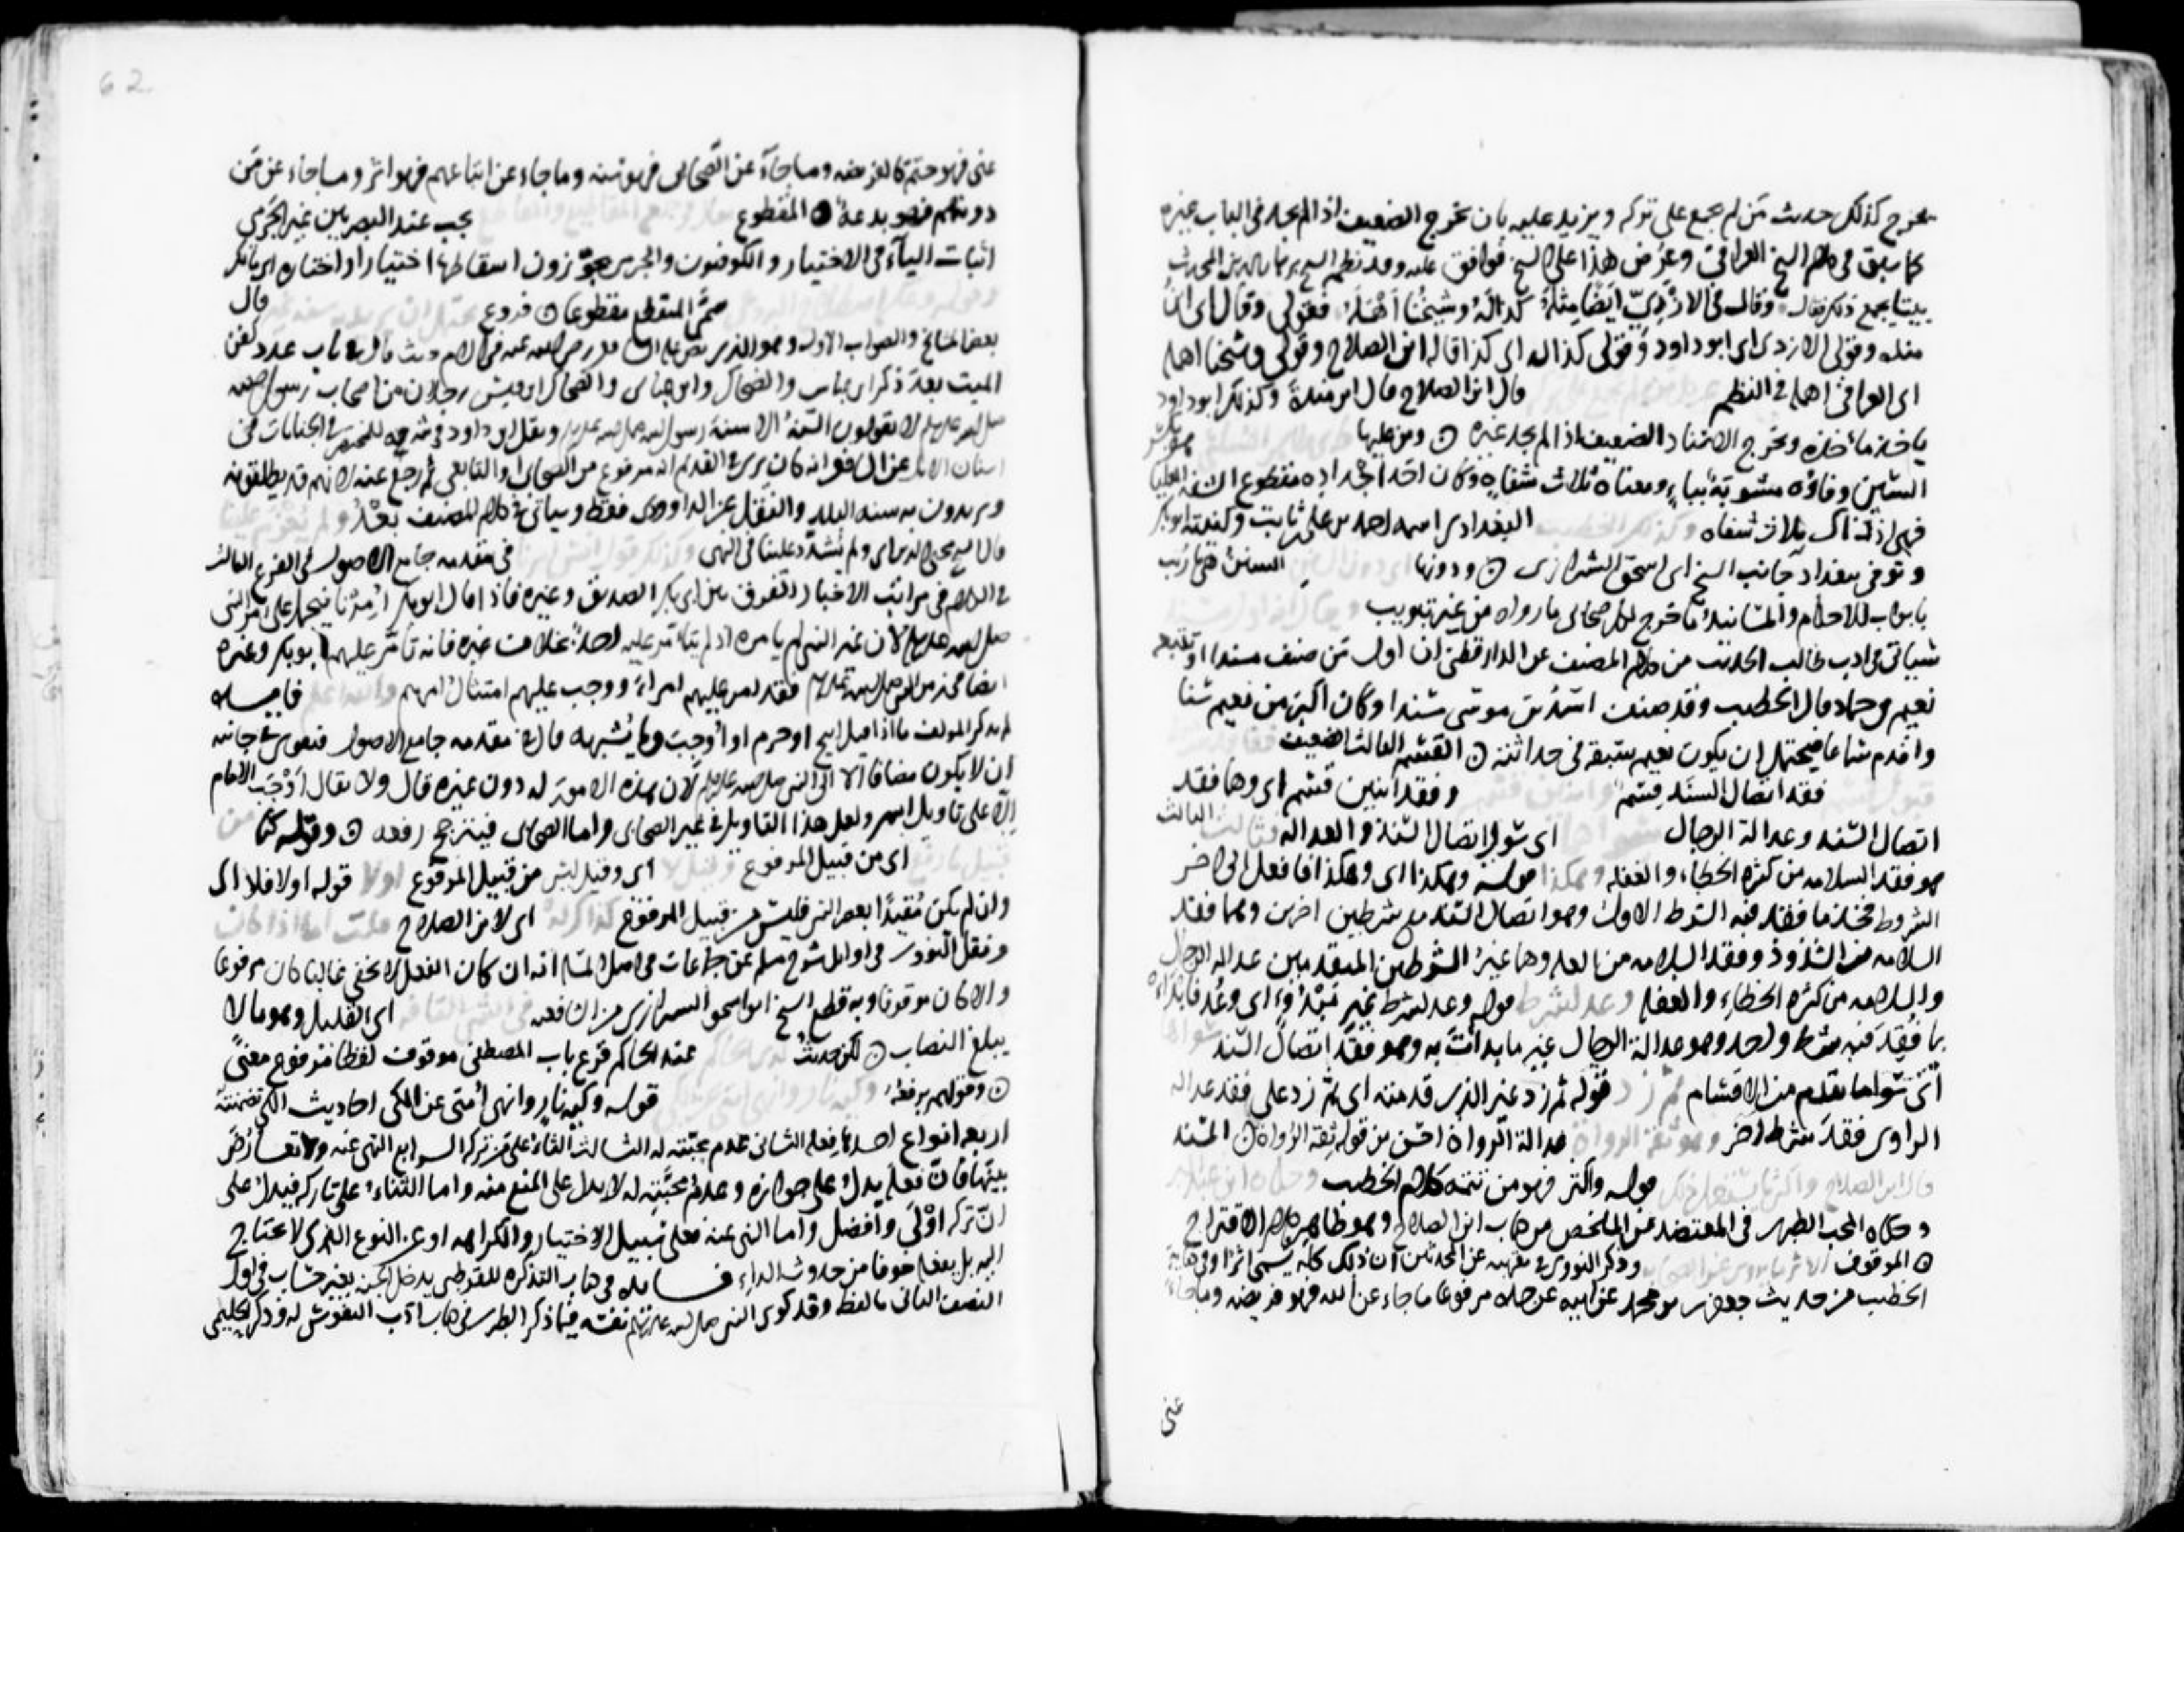 يخرج كذلك حديث من لم يجمع على تركه ويزيد عليه بان يخرج الضعيف اذا لم يجد في الباب غيره
كما سبق في كلام الشيخ العراقي وعرض هذا على الشيخ فوافق عليه وقد نظم الشيخ
بيتا يجمع ذلك فقال وقال في الازدي ايضا مثله كذا له وشيخنا اهمله فقولي وقال اي ان
مثله وقولي الازدي اي ابو داود وقولي كذا له اي كذا قاله ابن الصلاح وقولي وشيخنا اهمله
اي العراقي اهمله في النظم قال ابن الصلاح قال ابن مندة وكذلك ابو داود
ياخذ مأخذه ويخرج الاسناد الضعيف اذا لم يجد غيره ومن عليها
السين وفاؤه مشوبة بباء ومعناه ثلاث شفاه وكان احد اجداده مقطوع الشفة العليا
فهي اذ ذاك ثلاث شفاه البغدادي اسمه احمد بن علي بن ثابت وكنيته ابو بكر
وتوفي ببغداد جانب الشيخ ابي اسحق الشيرازي ودونها السنن هي ما رتب
بابواب للاحكام والمسانيد ما خرج لكل صحابي ما رواه من غير تبويب
سياتي في ادب طالب الحديث من كلام المصنف عن الدارقطني ان اول من صنف مسندا وتتبعه
نعيم بن حماد قال الخطيب وقد صنف اسد بن موسى مسندا وكان اكبر من نعيم سنا
واقدم سماعا فيحتمل ان يكون نعيم سبقه في حداثته القسم الثالث الضعيف
فقد اتصال السند قسم وفقد اثنين قسم اي وهما فقد
اتصال السند وعدالة الرجال اي سوى اتصال السند والعدالة الثالث
هو فقد السلامة من كثرة الخطاء والغفلة قوله وهكذا اي وهكذا فافعل الى اخر
الشروط فخذ ما فقد فيه الشرط الاول وهو اتصال السند مع شرطين اخرين وهما فقد
السلامة من الشذوذ وفقد السلامة من العلة وهما غير الشرطين المتقدمين عدالة الرجال
والسلامة من كثرة الخطاء والغفلة قوله وعد لشرط غير مبدو اي وعد فابدا
بما فقد فيه شرط واحد وهو عدالة الرجال غير ما بدات به وهو فقد اتصال السند
اي سوى ما تقدم من الاقسام قوله ثم زد غير الذي قدمته اي ثم زد على فقد عدالة
الراوي فقد شرط اخر عدالة الرواة احسن من قوله ثقة الرواة المسند
قوله واكثر فهو من تتمة كلام الخطيب
وحكاه المحب الطبري في المعتضد عن الملخص من كتاب ابن الصلاح وهو ظاهر كلام الاقتراح
الموقوف وذكر النووي في تقريبه عن المحدثين ان ذلك كله يسمى اثرا وفي كفاية
الخطيب من حديث جعفر بن محمد عن ابيه عن جده مرفوعا ما جاء عن الله فهو فريضة وما جاء
عني
عني فهو حتم كالفريضة وما جاء عن الصحابي فهو سنة وما جاء عن اتباعهم فهو اثر وما جاء عن من
دونهم فهو بدعة المقطوع يجب عند البصريين غير الجرمي
اثبات الياء في الاختيار والكوفيون والجرمي يجوزون اسقاطها اختيارا واختاره ابن مالك
سمى المنقطع مقطوعا فروع قال
بعض المشايخ والصواب الاول وهو الذي نص عليه الشافعي رضي الله عنه في الام حيث قال في باب عدد كفن
الميت بعد ذكر ابن عباس والضحاك وابن عباس والضحاك بن قيس رجلان من اصحاب رسول الله
صلى الله عليه وسلم لا يقولون السنة الا سنة رسول الله صلى الله عليه وسلم ونقل ابن داود في شرحه للمختصر في الجنايات في
اسنان الابل عن الشافعي انه كان يرى في القديم انه مرفوع من الصحابي والتابعي ثم رجع عنه لانهم قد يطلقونه
ويريدون به سنة البلد والنقل عن الداودي فقط وسياتي في كلام المصنف بعد
ولم يشدد علينا في النهي في مقدمه جامع الاصول في الفرع الثالث
في مراتب الاخبار التفرق بين ابي بكر الصديق وغيره فاذا قال ابو بكر امرنا فيحمل على امر النبي
صلى الله عليه وسلم لان غير النبي لم يامره اذ لم يتامر عليه احد بخلاف غيره فانه تامر عليهم ابو بكر وغيره
فقد امر عليهم امراء ووجب عليهم امتثال امرهم فايده
لم يذكر المولف ما اذا قيل ابيح او حرم او اوجب وما يشبهه قال في مقدمه جامع الاصول فيقوى في جانبه
ان لا يكون مضافا الا الى النبي صلى الله عليه وسلم لان هذه الامور له دون غيره قال ولا يقال اوجب الامام
الا على تاويل امر ولعل هذا التاويل في غير الصحابي واما الصحابي فيترجح رفعه وقوله كنا
اي من قبيل المرفوع اي وقيل ليس من قبيل المرفوع قوله او لا فلا اي
وان لم يكن مقيدا بعصر النبي فليس من قبيل المرفوع اي لابن الصلاح
ونقل النووي في اوايل شرح مسلم عن جماعات في اصل المسئلة انه ان كان الفعل لا يخفى غالبا كان مرفوعا
والا كان موقوفا وبه قطع الشيخ ابو اسحق الشيرازي من الشافعية اي القليل وهو ما لا
يبلغ النصاب لكن حديث عند الحاكم قرع باب المصطفى موقوف لفظا مرفوع معنى
وقولهم يرفعه قوله وكية نار وانهى امتي عن الكي احاديث الكي تضمنت
اربعة انواع احدها فعله الثاني عدم محبته له الثالث الثناء على من تركه الرابع النهي عنه ولا تعارض
بينها فان فعله يدل على جوازه وعدم محبته له لا يدل على المنع منه واما الثناء على تاركه فيدل على
ان تركه اولى وافضل واما النهي عنه فعلى سبيل الاختيار والكراهه او عن النوع الذي لا يحتاج
اليه بل يفعله خوفا من حدوث الداء فايده في كتاب التذكرة للقرطبي يدخل الجنة بغير حساب في اول
النصف الثاني ما لفظه وقد كوي النبي صلى الله عليه وسلم نفسه فيما ذكر الطبري في كتاب اداب النفوس له وذكر الحليمي